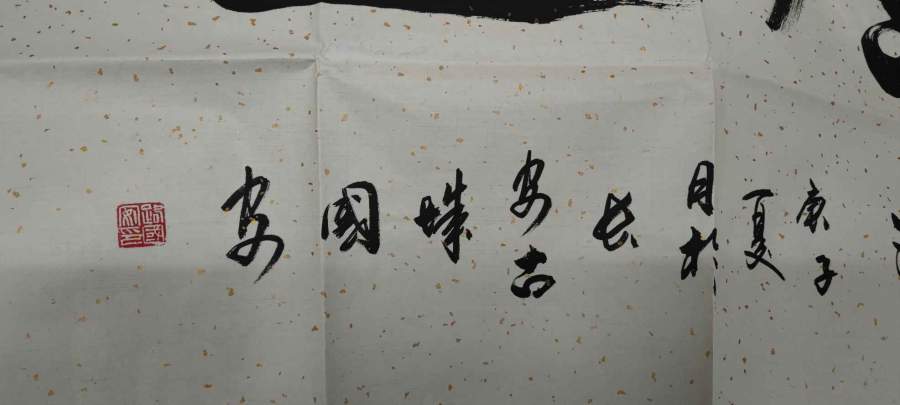 庚子
夏
月於
长
安古
城
國
安